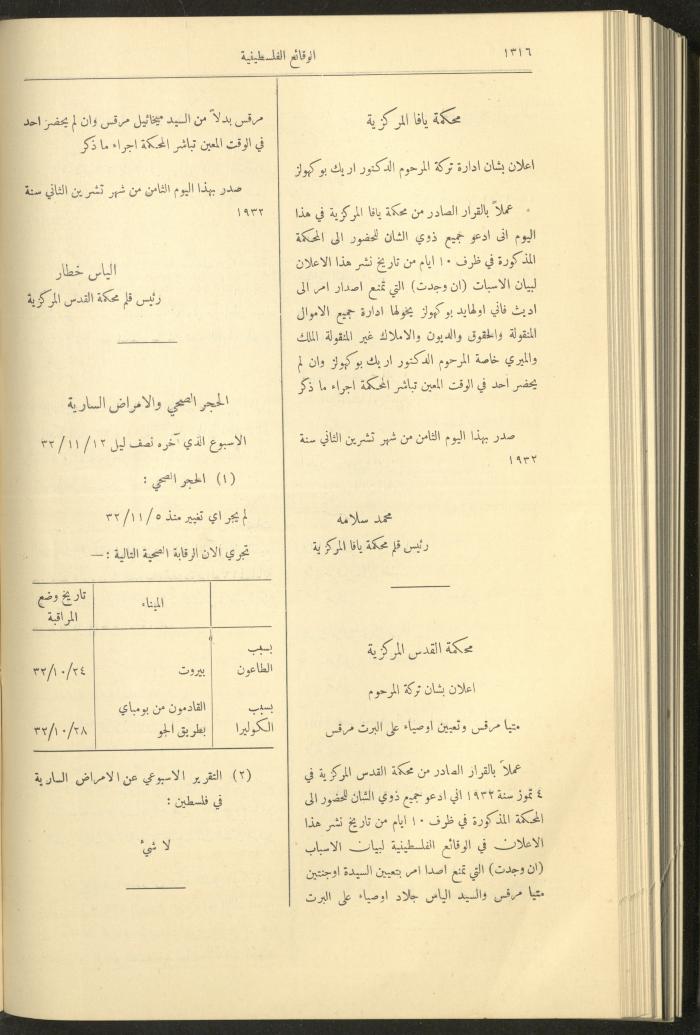 ١٣١٦
الوقائع الفلسطينية
محكمة يافا المركزية
اعلان بشان ادارة تركة المرحوم الدكتور اريك بوكهولز
عملاً بالقرار الصادر من محكمة يافا المركزية في هذا
اليوم اني ادعو جميع ذوي الشان للحضور الى المحكمة
المذكورة في ظرف ١٠ ايام من تاريخ نشر هذا الاعلان
لبيان الاسبات (ان وجدت) التي تمنع اصدار امر الى
اديث فاني اولهايد بوكهولز يخولها ادارة جميع الاموال
المنقولة والحقوق والديون والاملاك غير المنقولة الملك
والميري خاصة المرحوم الدكتور اريك بوكهولز وان لم
يحضر احد في الوقت المعين تباشر المحكمة اجراء ما ذكر
صدر بهذا اليوم الثامن من شهر تشرين الثاني سنة
١٩٣٢
محمد سلامه
رئيس قلم محكمة يافا المركزية
محكمة القدس المركزية
اعلان بشان تركة المرحوم
متيا مرقس وتعيين اوصياء على البرت مرقس
عملاً بالقرار الصادر من محكمة القدس المركزية في
٤ تموز سنة ١٩٣٢ اني ادعو جميع ذوي الشان للحضور الى
المحكمة المذكورة في ظرف ١٠ ايام من تاريخ نشر هذا
الاعلان في الوقائع الفلسطينية لبيان الاسباب
(ان وجدت) التي تمنع اصدا امر بتعيين السيدة اوجنتين
متيا مرقس والسيد الياس جلاد اوصياء على البرت
مرقس بدلاً من السيد ميخائيل مرقس وان لم يحضر احد
في الوقت المعين تباشر المحكمة اجراء ما ذكر
صدر بهذا اليوم الثامن من شهر تشرين الثاني سنة
١٩٣٢
الياس خطار
رئيس قلم محكمة القدس المركزية
الحجر الصحي والامراض السارية
الاسبوع الذي آخره نصف ليل ١٢/١١/٣٢
(١) الحجر الصحي :
لم يجر اي تغيير منذ ٥/١١/٣٢
تجري الان الرقابة الصحية التالية :—
الميناء
تاريخ وضع
المراقبة
بسبب
الطاعون
بيروت
٢٤/١٠/٣٢
بسبب
الكوليرا
القادمون من بومباي
بطريق الجو
٢٨/١٠/٣٢
(٢) التقرير الاسبوعي عن الامراض السارية
في فلسطين :
لا شيء